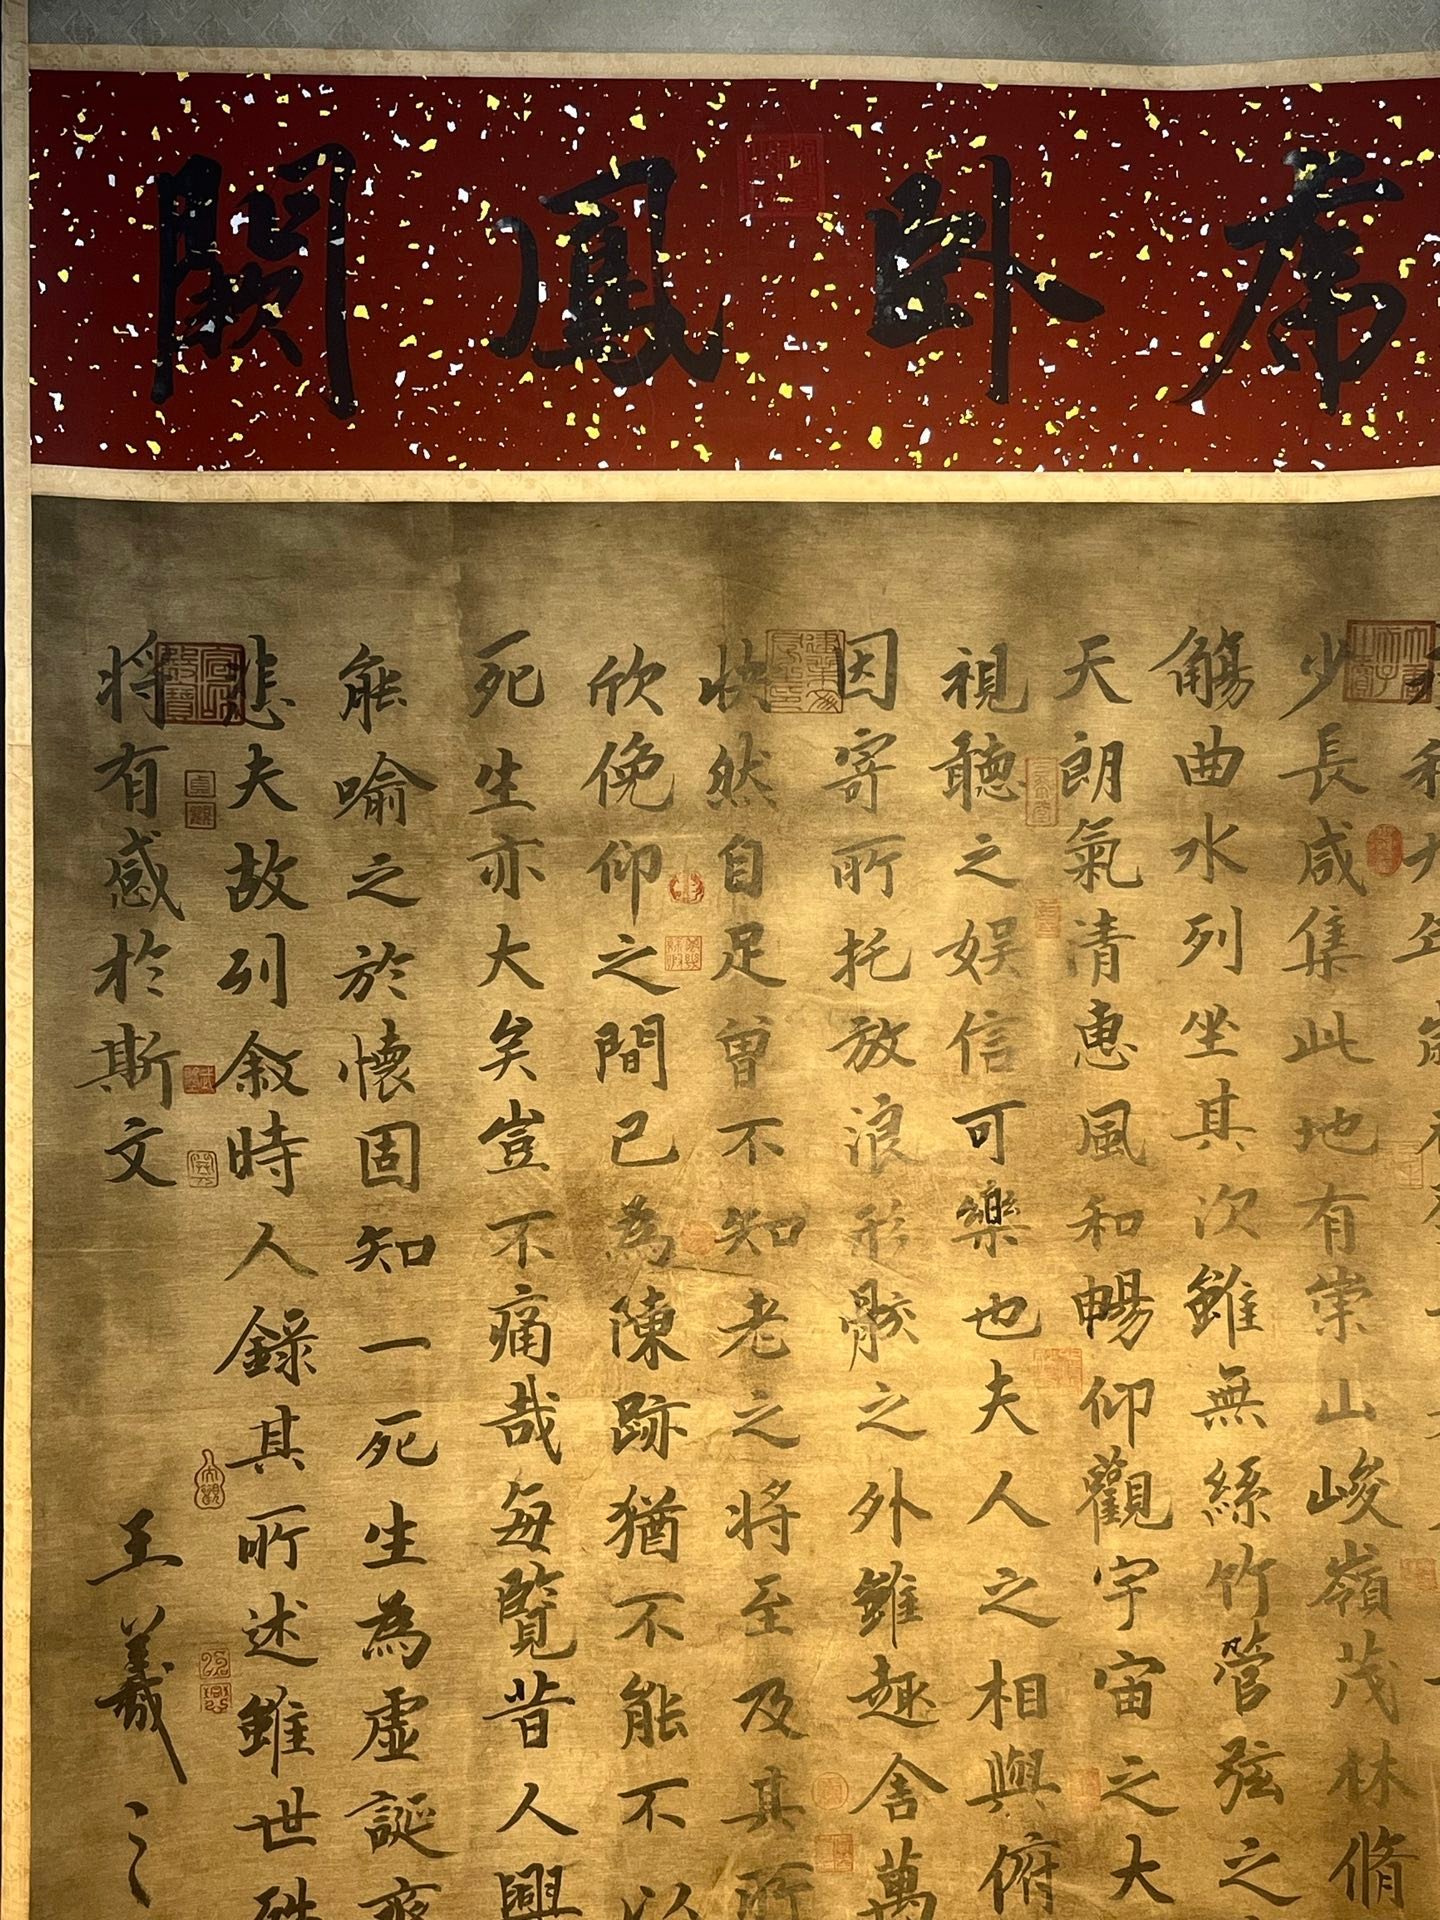 虎卧鳳闕
少長咸集此地有崇山峻嶺茂林脩
觴曲水列坐其次雖無絲竹管弦之
天朗氣清惠風和暢仰觀宇宙之大
視聽之娛信可樂也夫人之相與俯
因寄所托放浪形骸之外雖趣舍萬
快然自足曾不知老之將至及其所
欣俛仰之間已為陳跡猶不能不以
死生亦大矣豈不痛哉每覽昔人興
能喻之於懷固知一死生為虛誕齊
悲夫故列叙時人錄其所述雖世殊
將有感於斯文
王羲之
貞觀
大觀